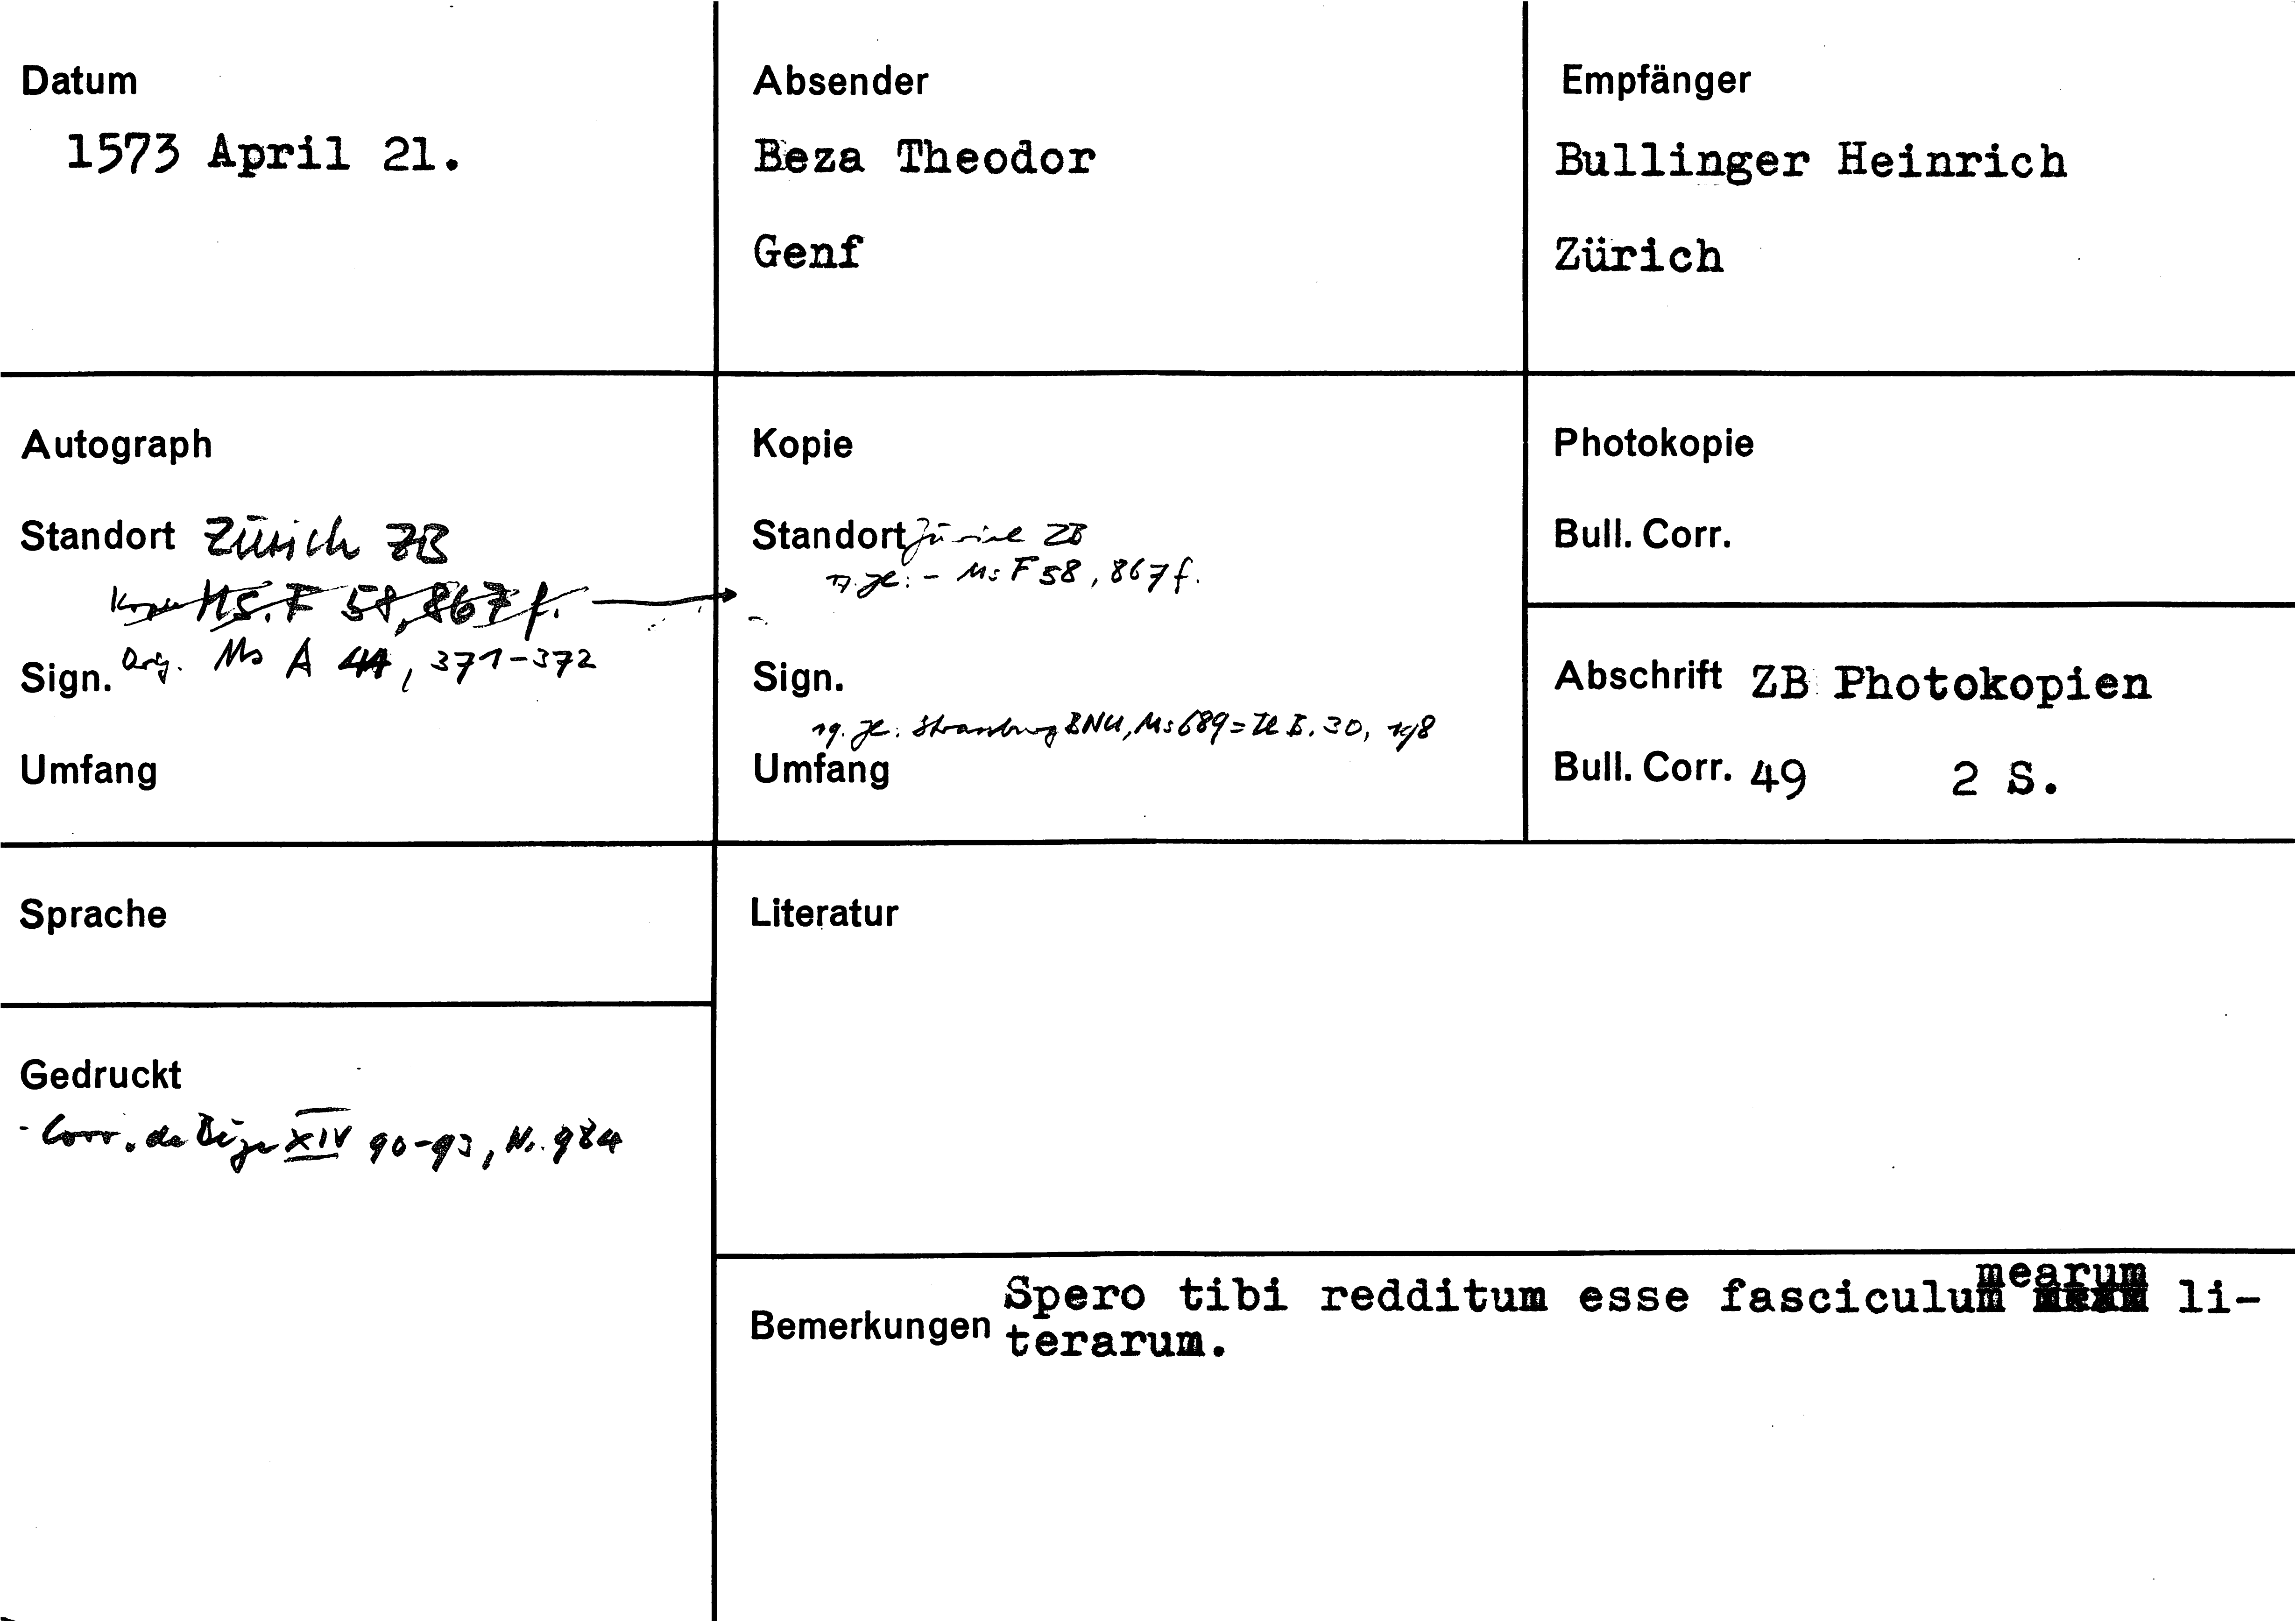 Datum
1573 April 21.
Absender
Beza Theodor
Genf
Empfänger
Bullinger Heinrich
Zürich
Autograph
Standort Zürich ZB
Kopie Ms. F 58, 867 f.
Sign. Orig. Ms A 44, 371-372
Umfang
Kopie
Standort Zürich ZB
17. Jh.: - Ms F 58, 867 f.
Sign.
19. Jh.: Strassburg BNU, Ms 689 =
Umfang
Photokopie
Bull. Corr.
Abschrift ZB Photokopien
Bull. Corr. 49 2 S.
Sprache
Literatur
Gedruckt
- Corr. de Bèze XIV 90-93, Nr. 984
Bemerkungen
Spero tibi redditum esse fasciculum mearum li-
terarum.